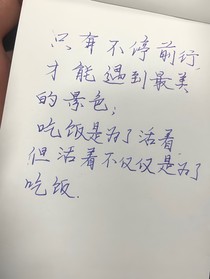 只有不停前行,
才能遇到最美
的景色;
吃饭是为了活着
但活着不仅仅是为了
吃饭.